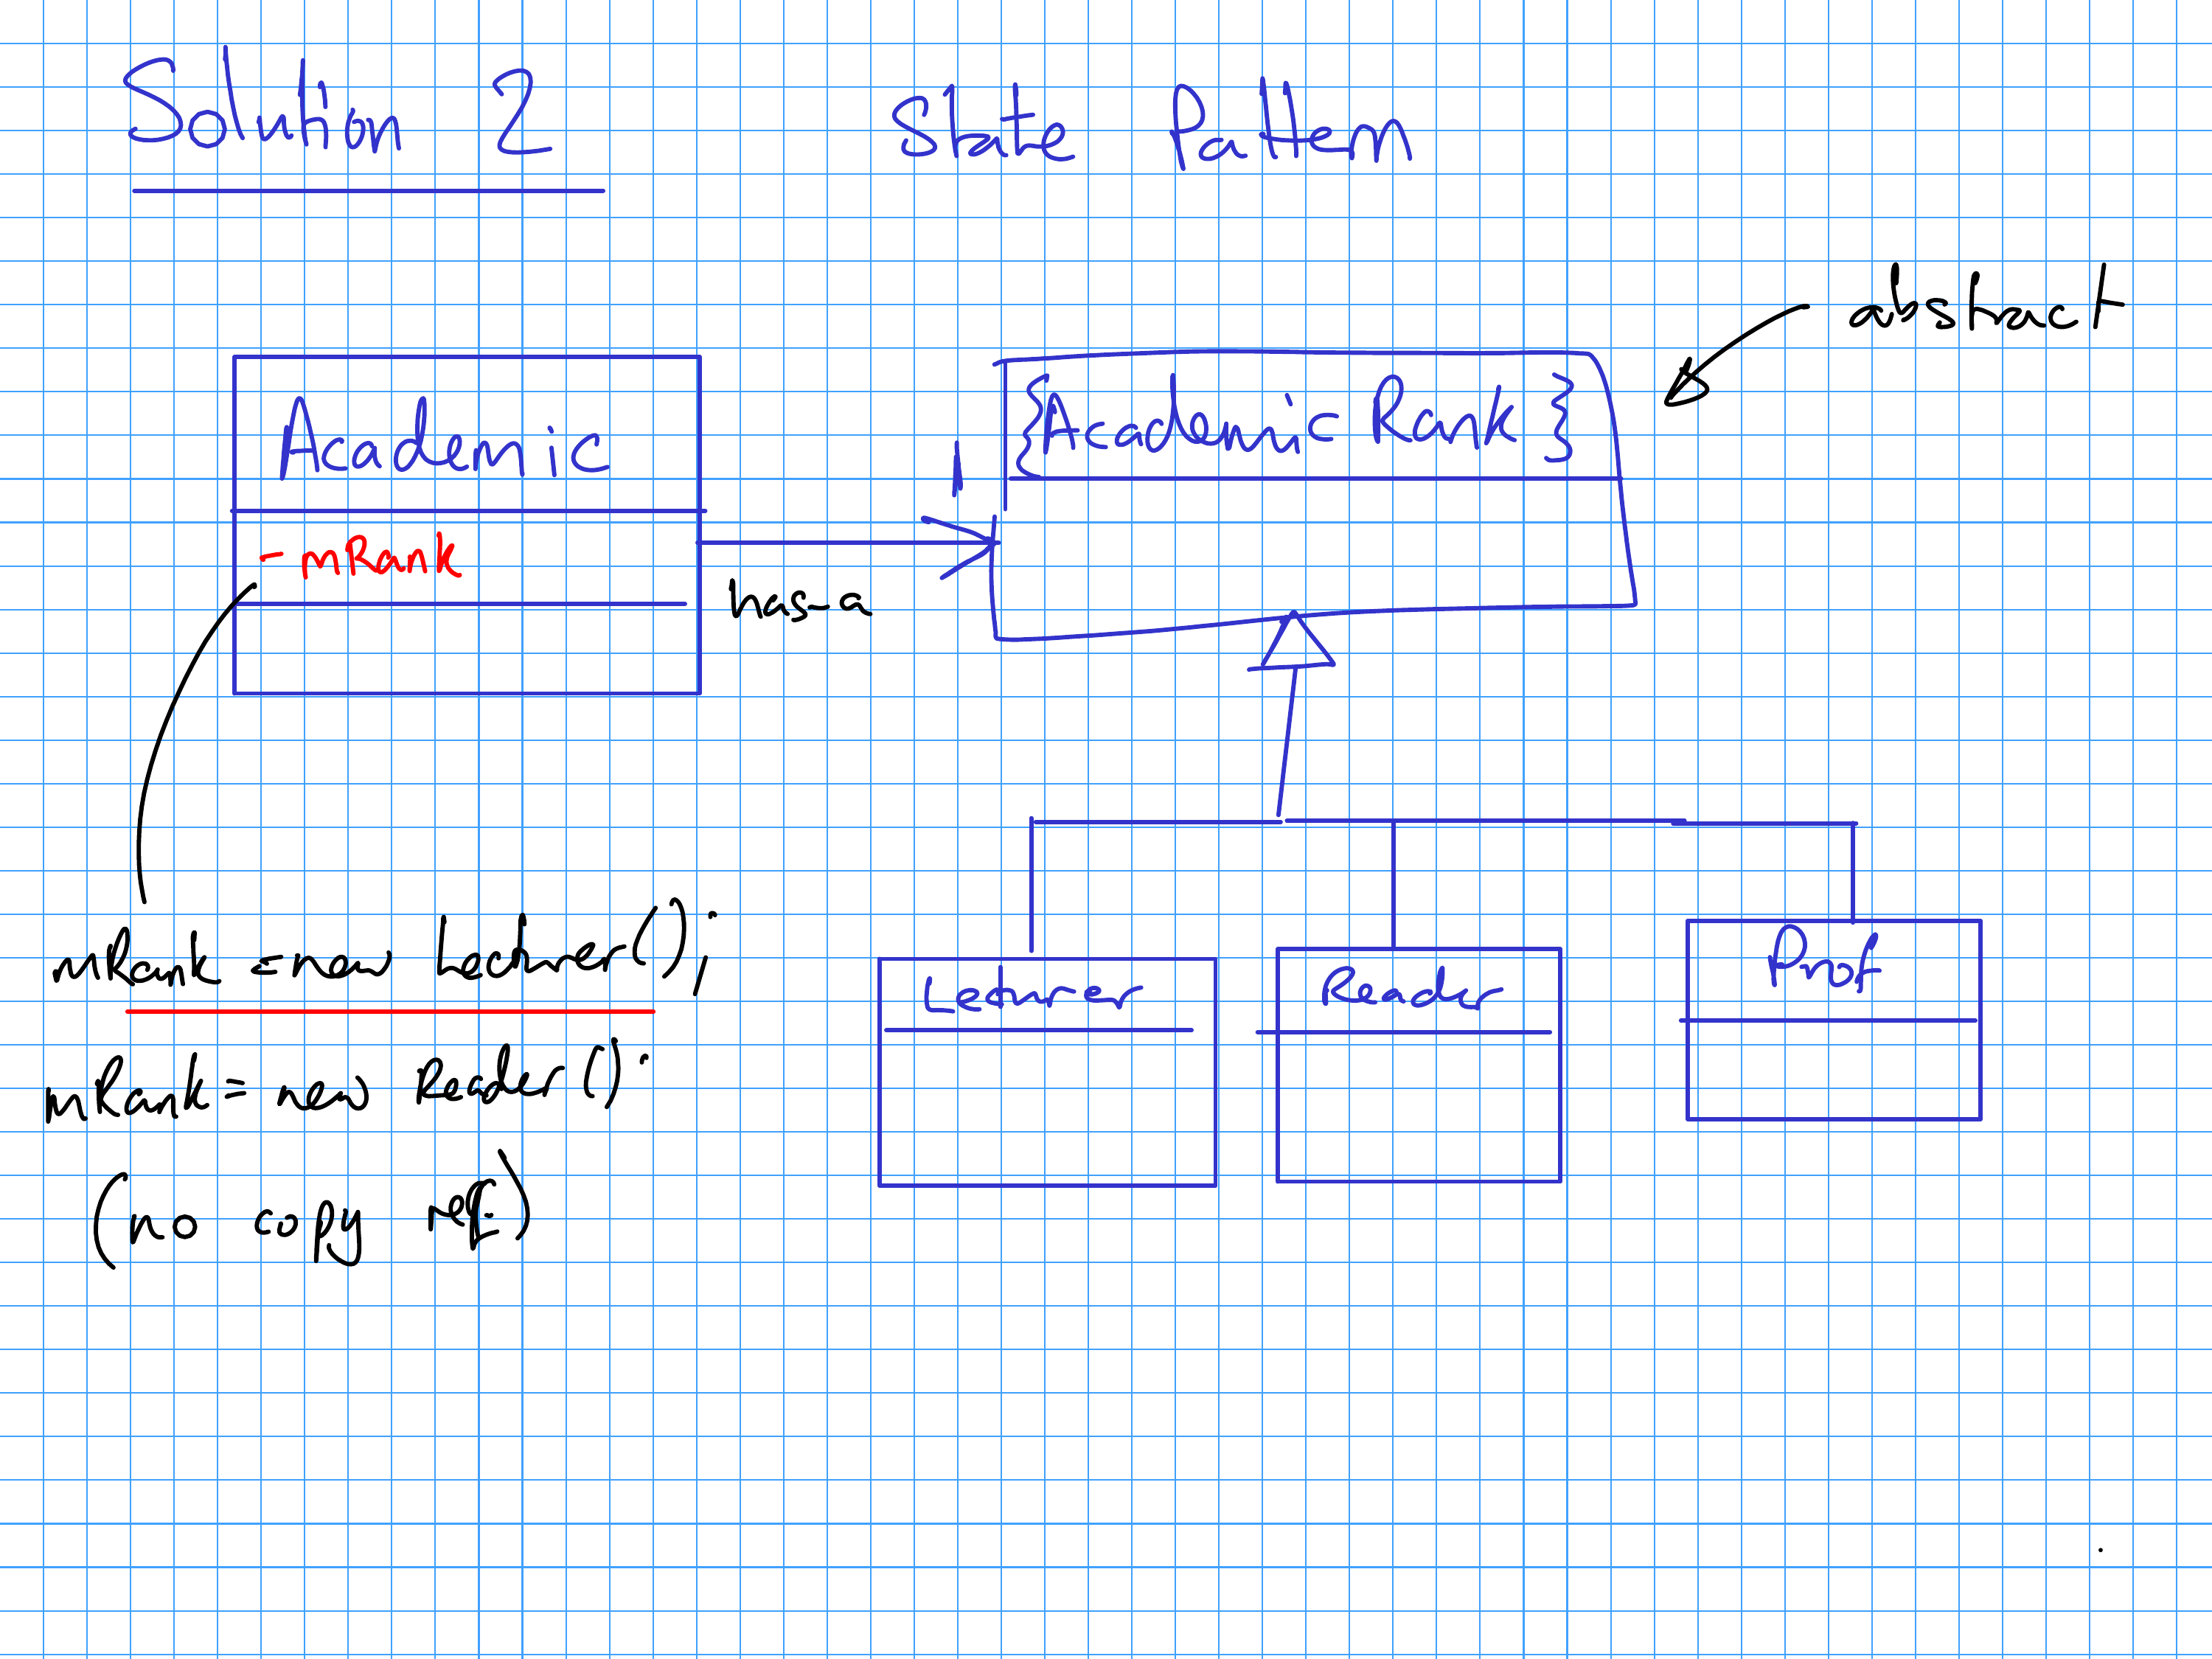 Solution 2
State Pattern
abstract
Academic
- mRank
has-a
1
{Academic Rank}
Lecturer
Reader
Prof
mRank = new Lecturer();
mRank = new Reader();
(no copy ref)